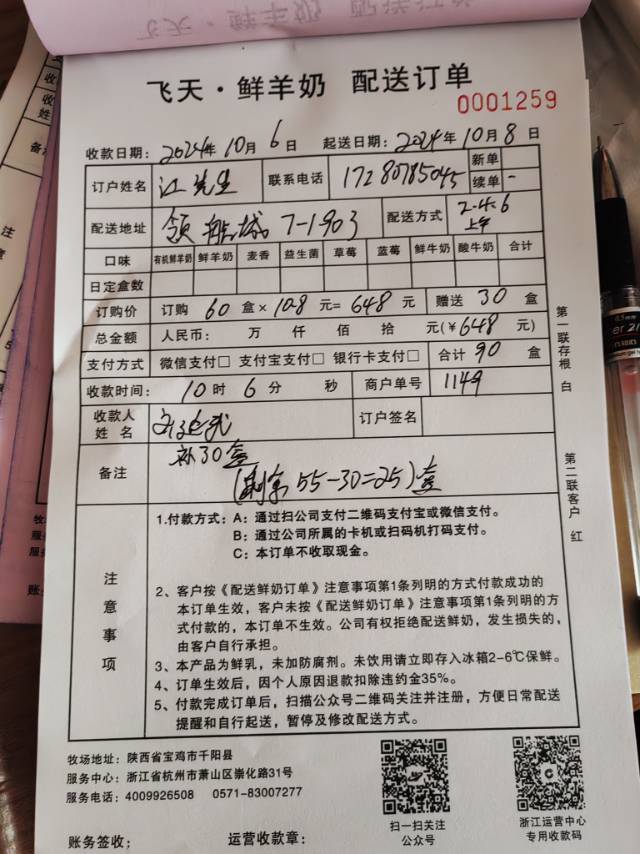 飞天·鲜羊奶 配送订单
0001259
收款日期：2024年10月6日 起送日期：2024年10月8日
订户姓名 江先生 联系电话 17280785045 新单
续单 -
配送地址 领 城 7-1-903 配送方式 2-4-6
上午
口味 有机鲜羊奶 鲜羊奶 麦香 益生菌 草莓 蓝莓 鲜牛奶 酸牛奶 合计
日定盒数
订购价 订购 60 盒×10.8元=648元 赠送 30 盒
总金额 人民币： 万 仟 佰 拾 元(¥648元)
支付方式 微信支付□ 支付宝支付□ 银行卡支付□ 合计 90 盒
收款时间： 10时 6分 秒 商户单号 1149
收款人
姓 名 订户签名
备注 补30盒
(剩余55-30=25)盒
第一联存根 白
第二联客户 红
注意事项
1.付款方式：A：通过扫公司支付二维码支付宝或微信支付。
B：通过公司所属的卡机或扫码机打码支付。
C：本订单不收取现金。
2、客户按《配送鲜奶订单》注意事项第1条列明的方式付款成功的
本订单生效，客户未按《配送鲜奶订单》注意事项第1条列明的方
式付款的，本订单不生效。公司有权拒绝配送鲜奶，发生损失的，
由客户自行承担。
3、本产品为鲜乳，未加防腐剂。未饮用请立即存入冰箱2-6℃保鲜。
4、订单生效后，因个人原因退款扣除违约金35%。
5、付款完成订单后，扫描公众号二维码关注并注册，方便日常配送
提醒和自行起送，暂停及修改配送方式。
牧场地址：陕西省宝鸡市千阳县
服务中心：浙江省杭州市萧山区崇化路31号
服务电话：4009926508 0571-83007277
扫一扫关注
公众号
浙江运营中心
专用收款码
账务签收： 运营收款章：